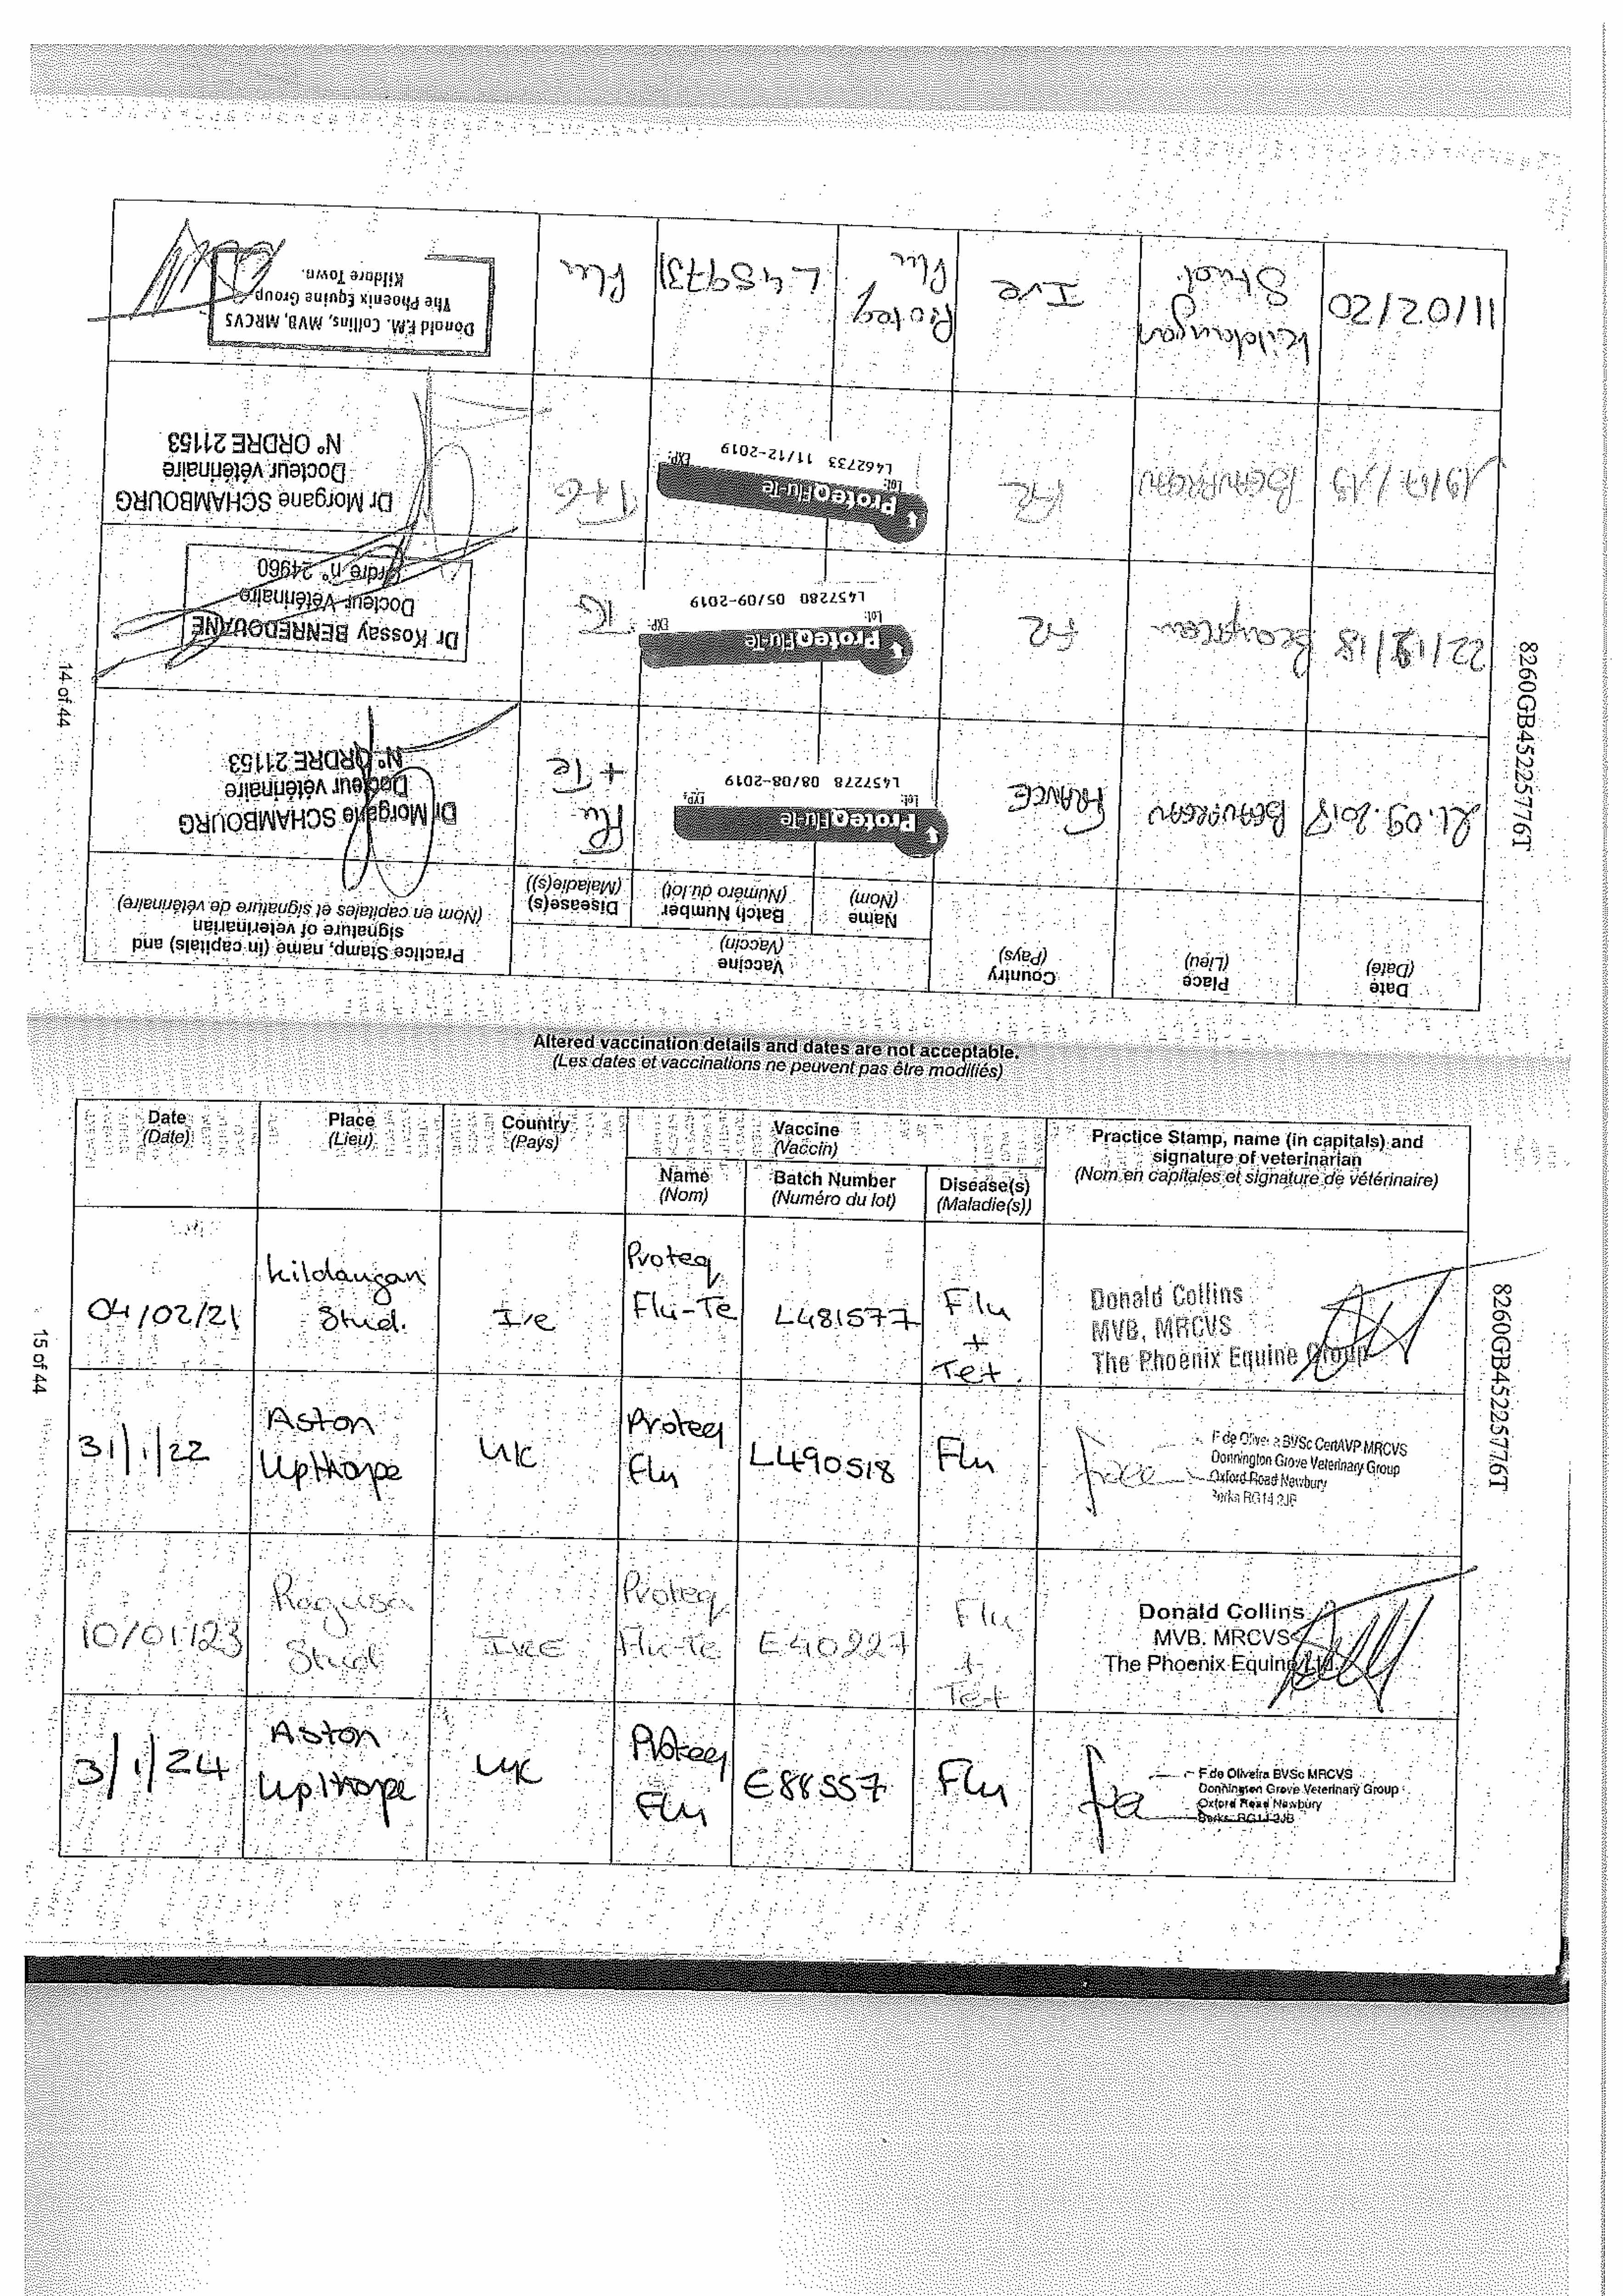 8260GB45225776T
Date
(Date)
Place
(Lieu)
Country
(Pays)
Vaccine
(Vaccin)
Name
(Nom)
Batch Number
(Numéro du lot)
Disease(s)
(Maladie(s))
Practice Stamp, name (in capitals) and
signature of veterinarian
(Nom en capitales et signature de vétérinaire)
FRANCE
ProteqFlu-Te
Lot: EXP:
L457278 08/08-2019
Flu
+ Te
Dr Morgane SCHAMBOURG
Docteur vétérinaire
N° ORDRE 21153
FR
ProteqFlu-Te
Lot: EXP:
L457280 05/09-2019
Dr Kossay BENREDOUANE
Docteur Vétérinaire
Ordre n° 24960
FR
ProteqFlu-Te
Lot: EXP:
L462733 11/12-2019
Dr Morgane SCHAMBOURG
Docteur vétérinaire
N° ORDRE 21153
11/02/20
Kildangan
Stud.
Ire
Proteq
Flu
Flu
Donald F.M. Collins, MVB, MRCVS
The Phoenix Equine Group
Kildare Town.
14 of 44
Altered vaccination details and dates are not acceptable.
(Les dates et vaccinations ne peuvent pas être modifiés)
Date
(Date)
Place
(Lieu)
Country
(Pays)
Vaccine
(Vaccin)
Name
(Nom)
Batch Number
(Numéro du lot)
Disease(s)
(Maladie(s))
Practice Stamp, name (in capitals) and
signature of veterinarian
(Nom en capitales et signature de vétérinaire)
04/02/21
Kildangan
Stud.
Ire
Proteq
Flu-Te
L481577
Flu
+
Tet.
Donald Collins
MVB, MRCVS
The Phoenix Equine Group
31/1/22
Aston
Upthorpe
UK
Proteq
Flu
L490518
Flu
F de Oliveira BVSc CertAVP MRCVS
Donnington Grove Veterinary Group
Oxford Road Newbury
Berks RG14 2JB
10/01/23
Ragusa
Stud
IRE
Proteq
Flu-Te
E40227
Flu
+
Tet
Donald Collins
MVB. MRCVS
The Phoenix Equine Ltd
3/1/24
Aston
Upthorpe
UK
Proteq
Flu
E88557
Flu
F de Oliveira BVSc MRCVS
Donnington Grove Veterinary Group
Oxford Road Newbury
Berks RG14 2JB
8260GB45225776T
15 of 44